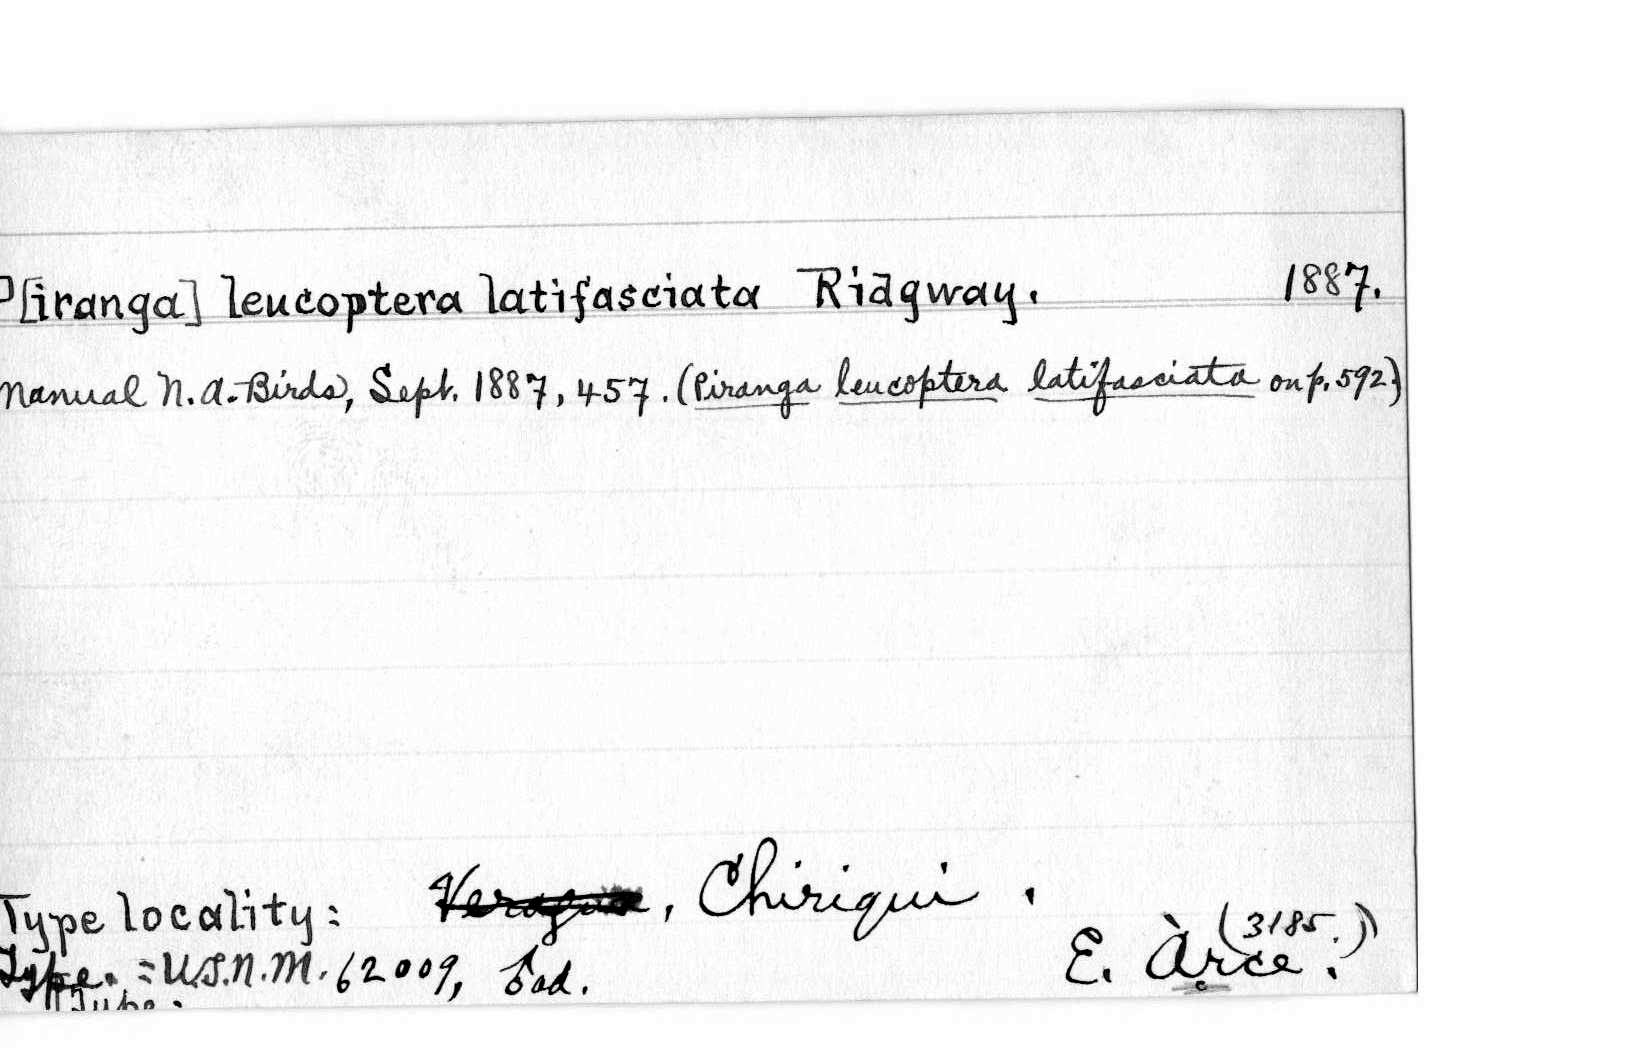 P[iranga] leucoptera latifasciata Ridgway. 1887.
Manual N.A. Birds, Sept. 1887, 457. (Piranga leucoptera latifasciata on p. 592)
Type locality: Veragua, Chiriqui.
(3185.)
Type. = U.S.N.M. 62009, ad. E. Arce.
Type.